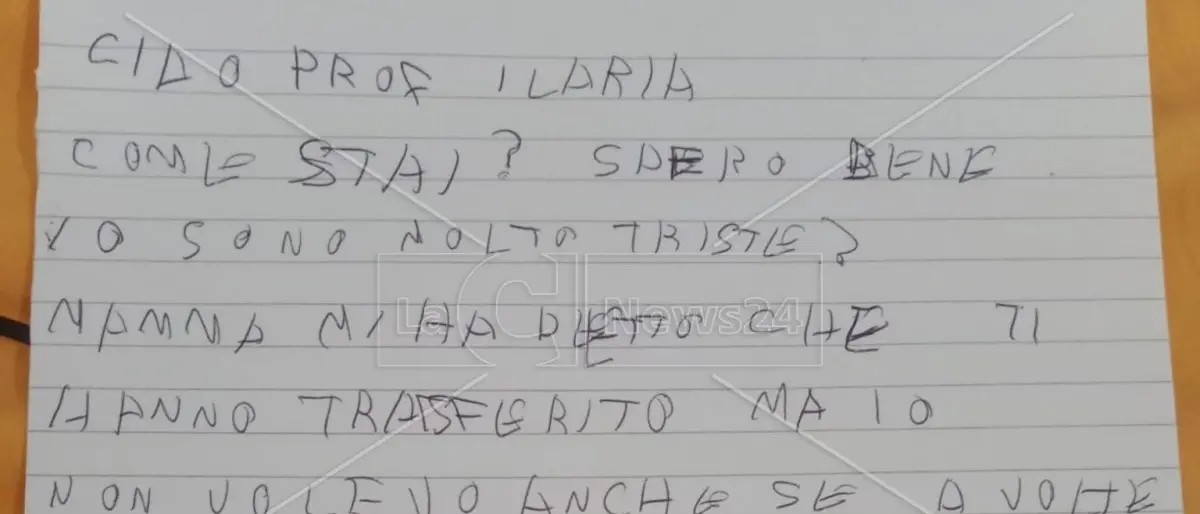 CIAO PROF ILARIA
COME STAI? SPERO BENE
IO SONO MOLTO TRISTE?
MAMMA MI HA DETTO CHE TI
HANNO TRASFERITO MA IO
NON VOLEVO ANCHE SE A VOLTE
LaC News24